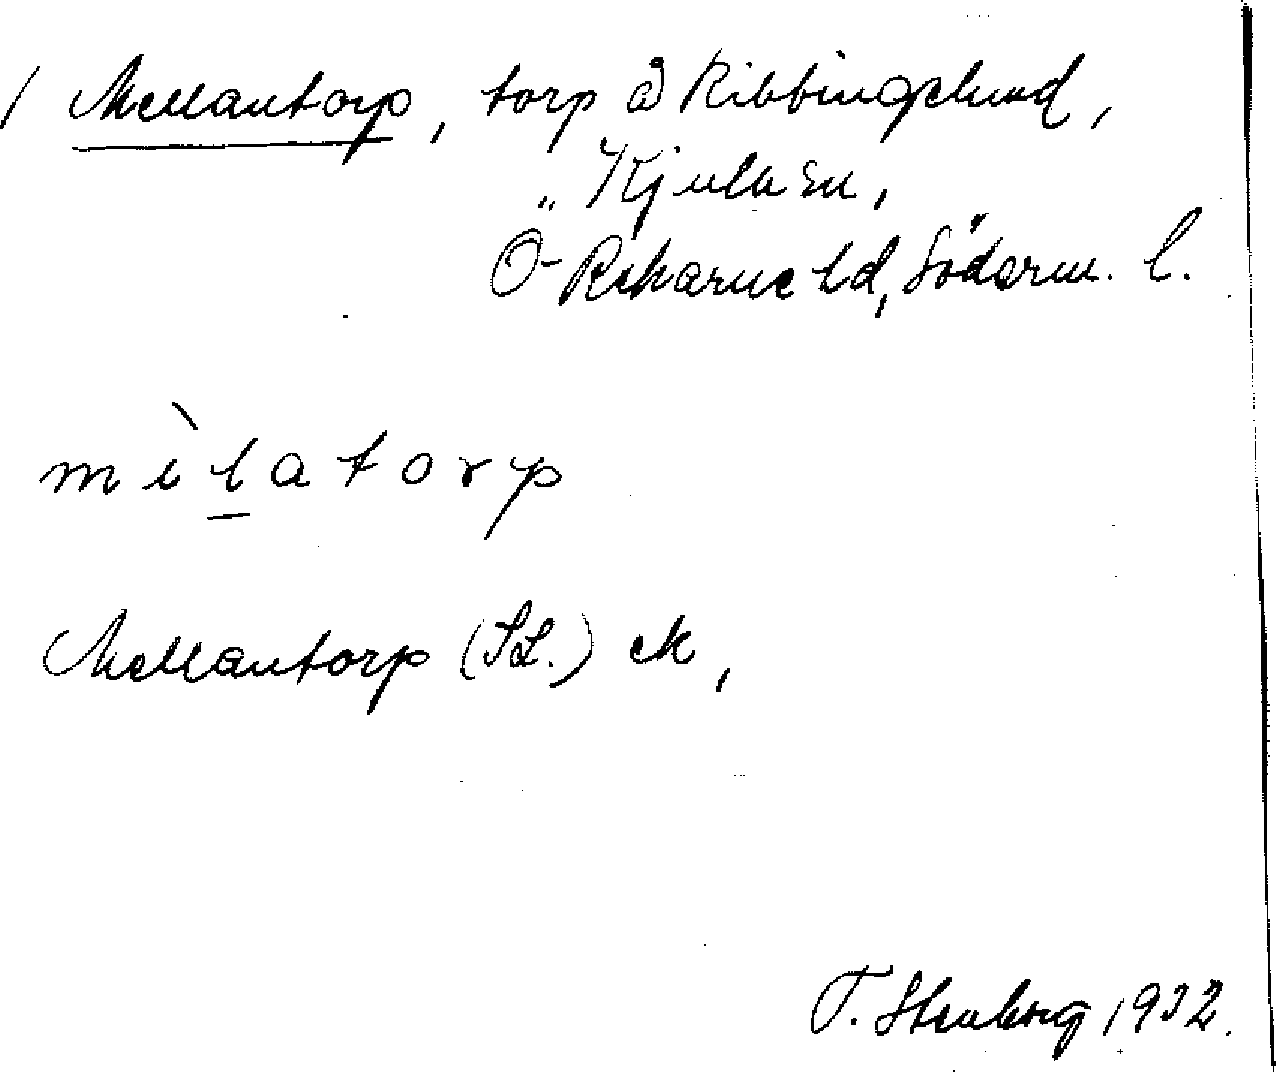 / Mellantorp, torp å Ribbingelund,
" Kjula sn,
Ö-Rekarne hd, Söderm. l.
mìlatorp
Mellantorp (SL.) ek,
T. Stenberg 1932.